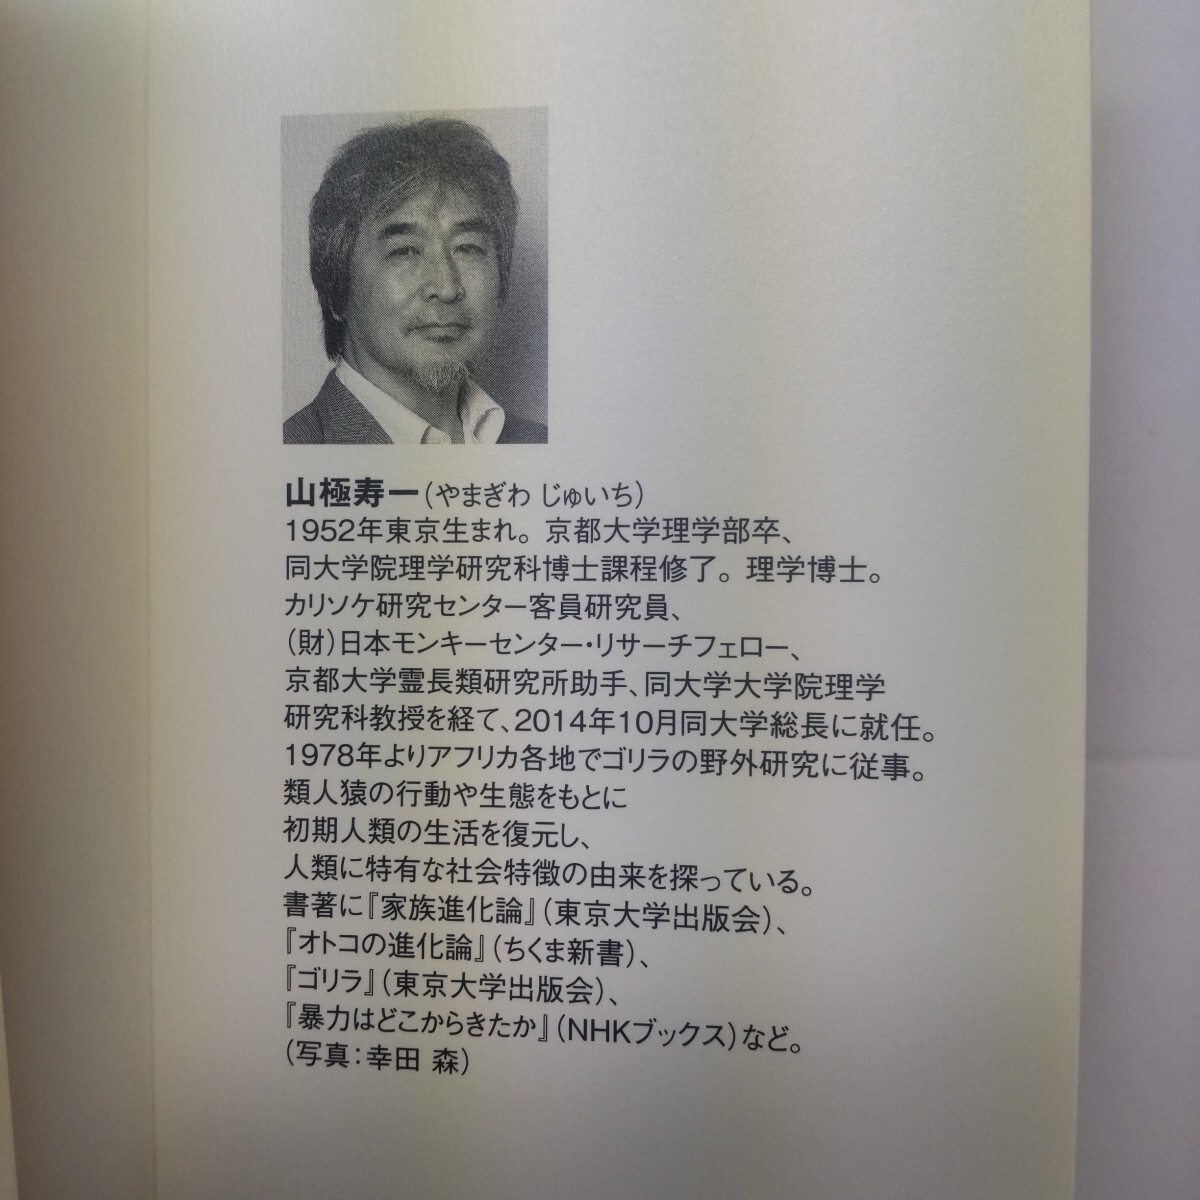 山極寿一(やまぎわ じゅいち)
1952年東京生まれ。京都大学理学部卒、
同大学院理学研究科博士課程修了。理学博士。
カリソケ研究センター客員研究員、
(財)日本モンキーセンター・リサーチフェロー、
京都大学霊長類研究所助手、同大学大学院理学
研究科教授を経て、2014年10月同大学総長に就任。
1978年よりアフリカ各地でゴリラの野外研究に従事。
類人猿の行動や生態をもとに
初期人類の生活を復元し、
人類に特有な社会特徴の由来を探っている。
書著に『家族進化論』(東京大学出版会)、
『オトコの進化論』(ちくま新書)、
『ゴリラ』(東京大学出版会)、
『暴力はどこからきたか』(NHKブックス)など。
(写真:幸田 森)